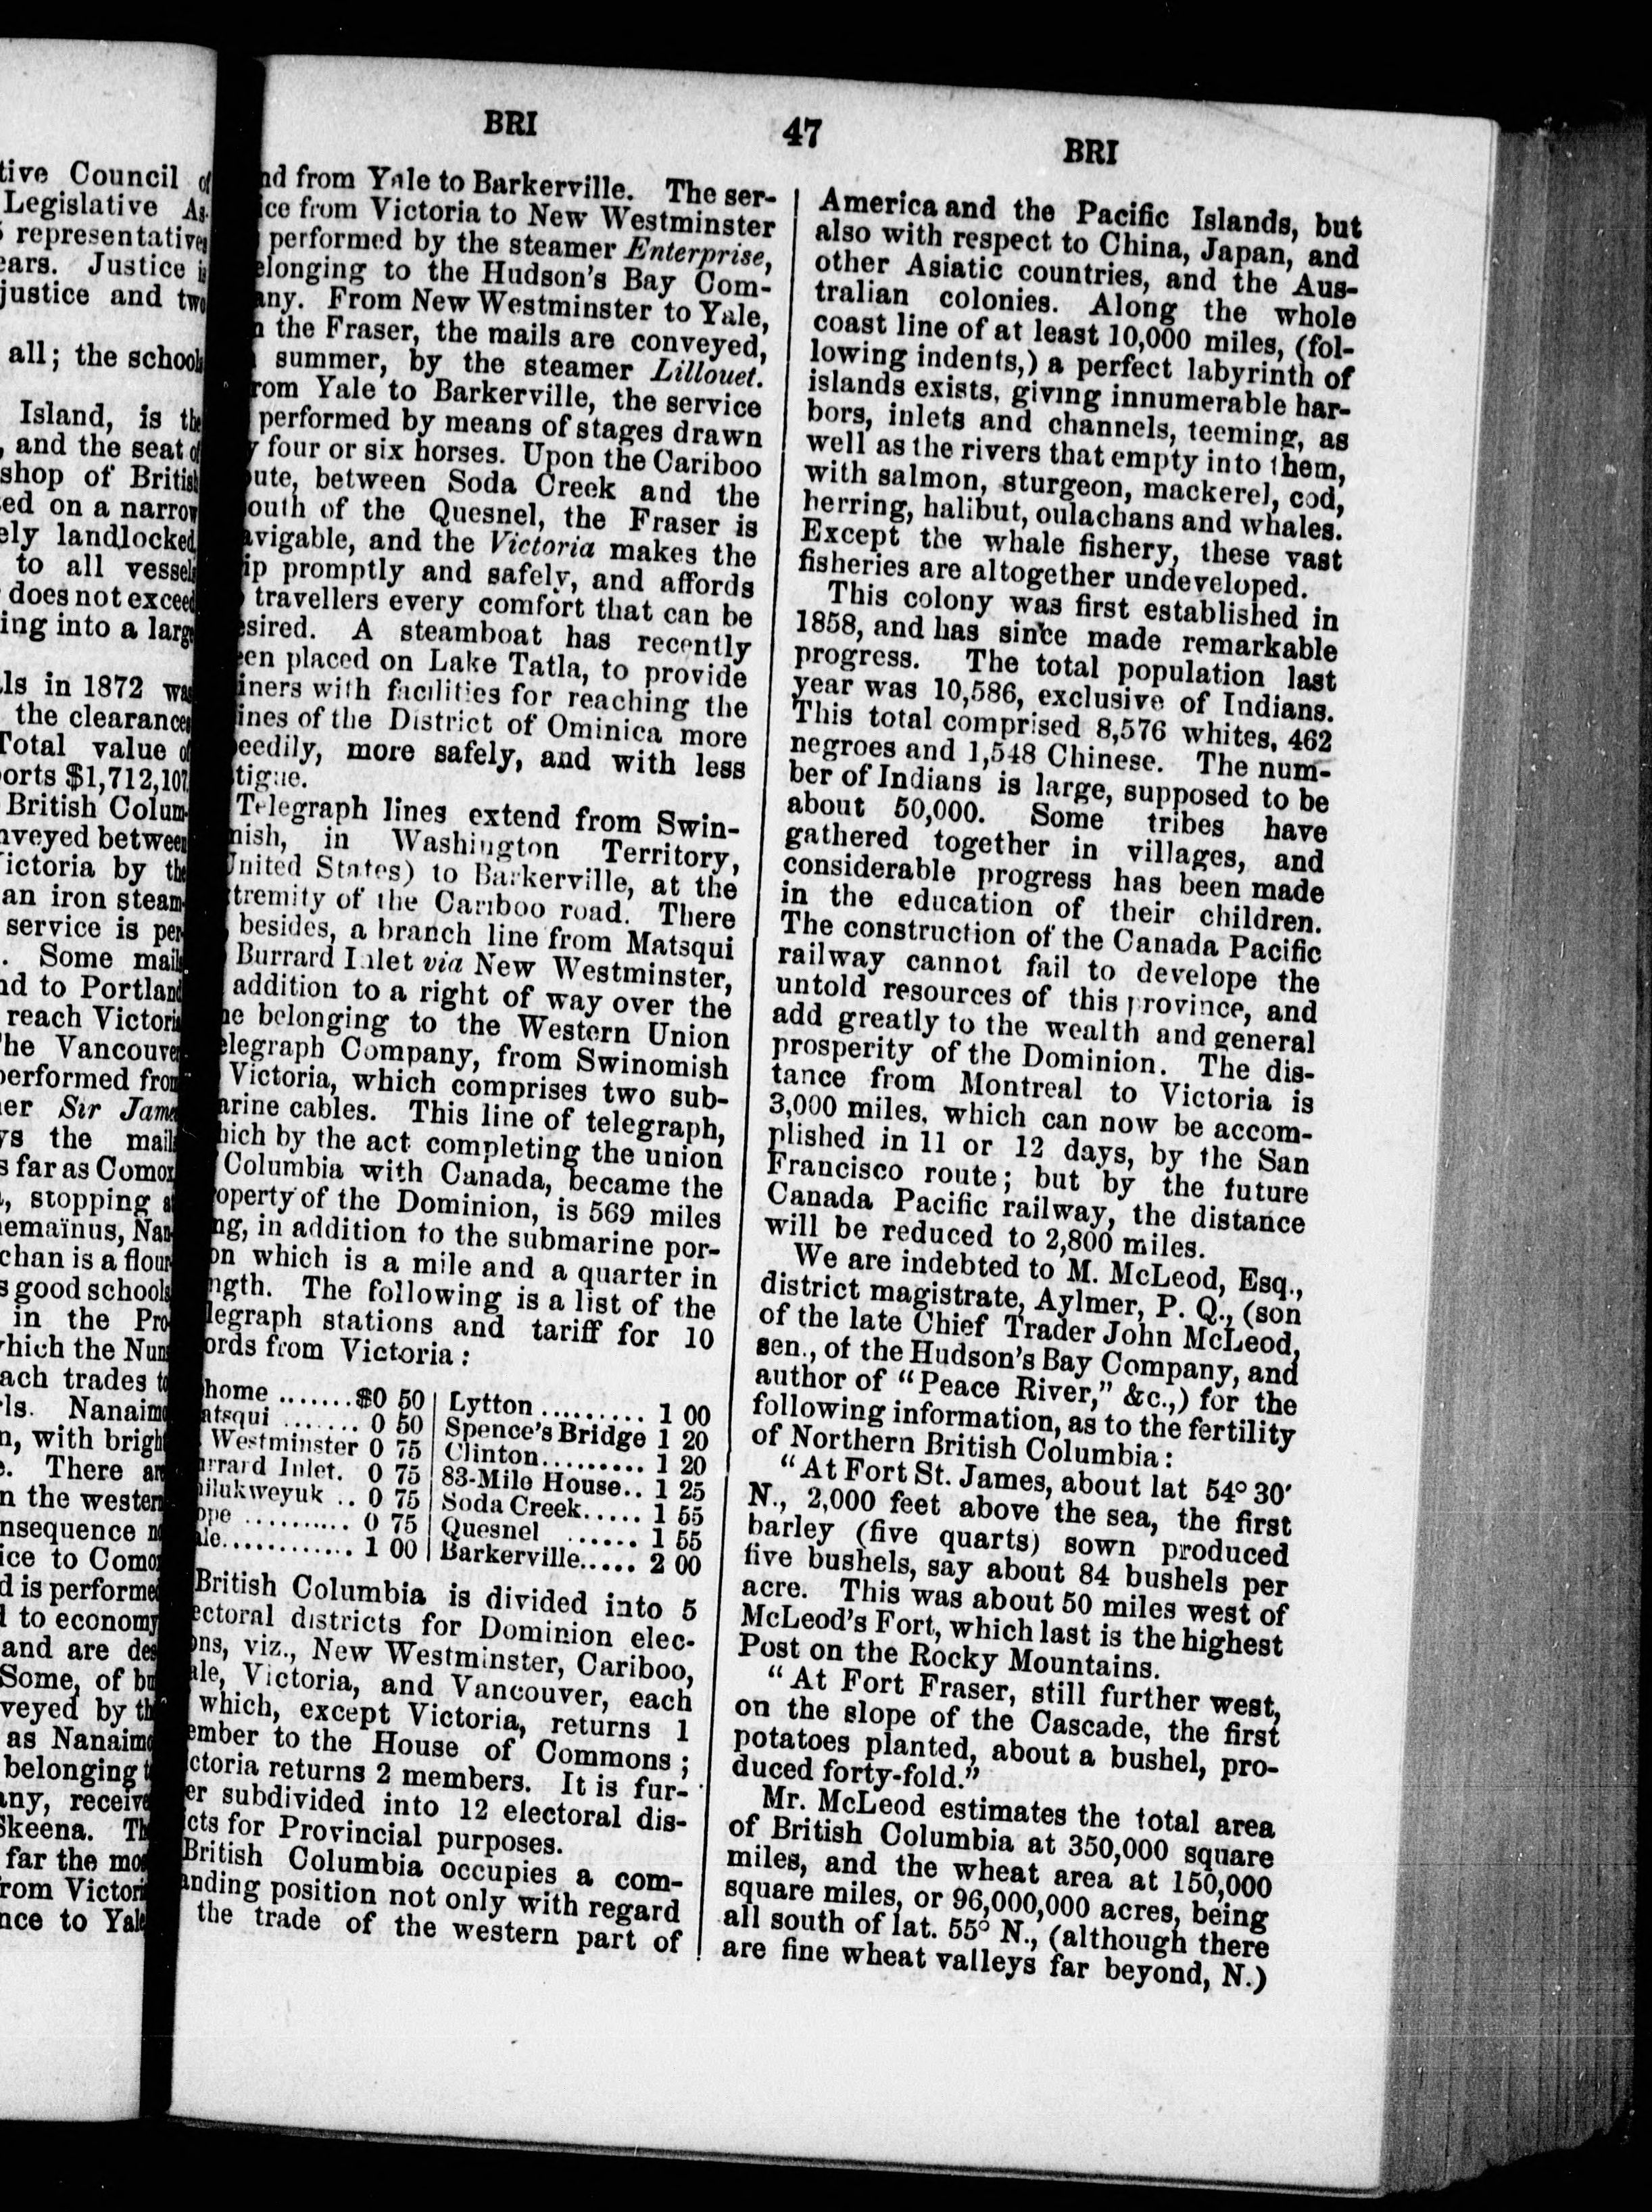 tive Council of
Legislative As-
representatives
ears. Justice is
justice and two
all; the schools
Island, is the
, and the seat of
shop of British
ed on a narrow
ely landlocked,
to all vessels
does not exceed
ing into a large
ls in 1872 was
the clearances
Total value of
orts $1,712,107.
British Colum-
nveyed between
ictoria by the
an iron steam-
service is per-
. Some mails
nd to Portland
reach Victoria
The Vancouver
performed from
er Sir James
ys the mails
s far as Comox
, stopping at
emaïnus, Nan-
chan is a flour-
s good schools
in the Pro-
which the Nuns
ach trades to
ls. Nanaimo
n, with bright
. There are
n the western
nsequence no
ice to Comox
d is performed
to economy
and are des-
Some, of bu
veyed by the
as Nanaimo
belonging to
any, receive
Skeena. Th
far the mos
rom Victoria
nce to Yale
BRI 47 BRI
nd from Yale to Barkerville. The ser-
ice from Victoria to New Westminster
performed by the steamer Enterprise,
elonging to the Hudson's Bay Com-
any. From New Westminster to Yale,
n the Fraser, the mails are conveyed,
summer, by the steamer Lillouet.
rom Yale to Barkerville, the service
performed by means of stages drawn
y four or six horses. Upon the Cariboo
oute, between Soda Creek and the
outh of the Quesnel, the Fraser is
avigable, and the Victoria makes the
ip promptly and safely, and affords
travellers every comfort that can be
esired. A steamboat has recently
een placed on Lake Tatla, to provide
iners with facilities for reaching the
ines of the District of Ominica more
peedily, more safely, and with less
tigue.
Telegraph lines extend from Swin-
nish, in Washington Territory,
United States) to Barkerville, at the
tremity of the Cariboo road. There
besides, a branch line from Matsqui
Burrard Inlet via New Westminster,
addition to a right of way over the
ne belonging to the Western Union
elegraph Company, from Swinomish
Victoria, which comprises two sub-
arine cables. This line of telegraph,
hich by the act completing the union
Columbia with Canada, became the
operty of the Dominion, is 569 miles
ng, in addition to the submarine por-
on which is a mile and a quarter in
ngth. The following is a list of the
legraph stations and tariff for 10
ords from Victoria:
home ....... $0 50 | Lytton .......... 1 00
atsqui ....... 0 50 | Spence's Bridge 1 20
Westminster 0 75 | Clinton......... 1 20
urrard Inlet. 0 75 | 83-Mile House.. 1 25
hilukweyuk .. 0 75 | Soda Creek..... 1 55
ope .......... 0 75 | Quesnel ....... 1 55
ale............ 1 00 | Barkerville..... 2 00
British Columbia is divided into 5
ectoral districts for Dominion elec-
ons, viz., New Westminster, Cariboo,
ale, Victoria, and Vancouver, each
which, except Victoria, returns 1
ember to the House of Commons;
ctoria returns 2 members. It is fur-
er subdivided into 12 electoral dis-
icts for Provincial purposes.
British Columbia occupies a com-
anding position not only with regard
the trade of the western part of
America and the Pacific Islands, but
also with respect to China, Japan, and
other Asiatic countries, and the Aus-
tralian colonies. Along the whole
coast line of at least 10,000 miles, (fol-
lowing indents,) a perfect labyrinth of
islands exists, giving innumerable har-
bors, inlets and channels, teeming, as
well as the rivers that empty into them,
with salmon, sturgeon, mackerel, cod,
herring, halibut, oulachans and whales.
Except the whale fishery, these vast
fisheries are altogether undeveloped.
This colony was first established in
1858, and has since made remarkable
progress. The total population last
year was 10,586, exclusive of Indians.
This total comprised 8,576 whites, 462
negroes and 1,548 Chinese. The num-
ber of Indians is large, supposed to be
about 50,000. Some tribes have
gathered together in villages, and
considerable progress has been made
in the education of their children.
The construction of the Canada Pacific
railway cannot fail to develope the
untold resources of this province, and
add greatly to the wealth and general
prosperity of the Dominion. The dis-
tance from Montreal to Victoria is
3,000 miles, which can now be accom-
plished in 11 or 12 days, by the San
Francisco route; but by the future
Canada Pacific railway, the distance
will be reduced to 2,800 miles.
We are indebted to M. McLeod, Esq.,
district magistrate, Aylmer, P. Q., (son
of the late Chief Trader John McLeod,
sen., of the Hudson's Bay Company, and
author of "Peace River," &c.,) for the
following information, as to the fertility
of Northern British Columbia:
"At Fort St. James, about lat 54° 30'
N., 2,000 feet above the sea, the first
barley (five quarts) sown produced
five bushels, say about 84 bushels per
acre. This was about 50 miles west of
McLeod's Fort, which last is the highest
Post on the Rocky Mountains.
"At Fort Fraser, still further west,
on the slope of the Cascade, the first
potatoes planted, about a bushel, pro-
duced forty-fold."
Mr. McLeod estimates the total area
of British Columbia at 350,000 square
miles, and the wheat area at 150,000
square miles, or 96,000,000 acres, being
all south of lat. 55° N., (although there
are fine wheat valleys far beyond, N.)